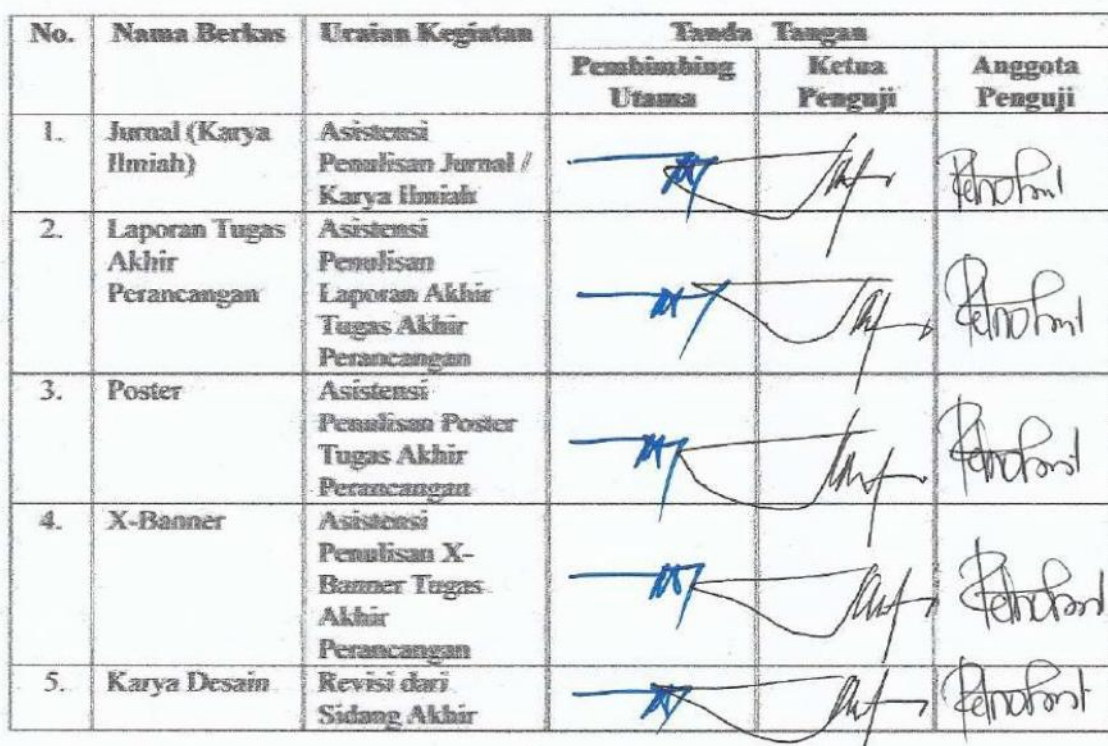 No. Nama Berkas Uraian Kegiatan Tanda Tangan
Pembimbing Utama Ketua Penguji Anggota Penguji
1. Jurnal (Karya Ilmiah) Asistensi Penulisan Jurnal / Karya Ilmiah
2. Laporan Tugas Akhir Perancangan Asistensi Penulisan Laporan Akhir Tugas Akhir Perancangan
3. Poster Asistensi Penulisan Poster Tugas Akhir Perancangan
4. X-Banner Asistensi Penulisan X-Banner Tugas Akhir Perancangan
5. Karya Desain Revisi dari Sidang Akhir